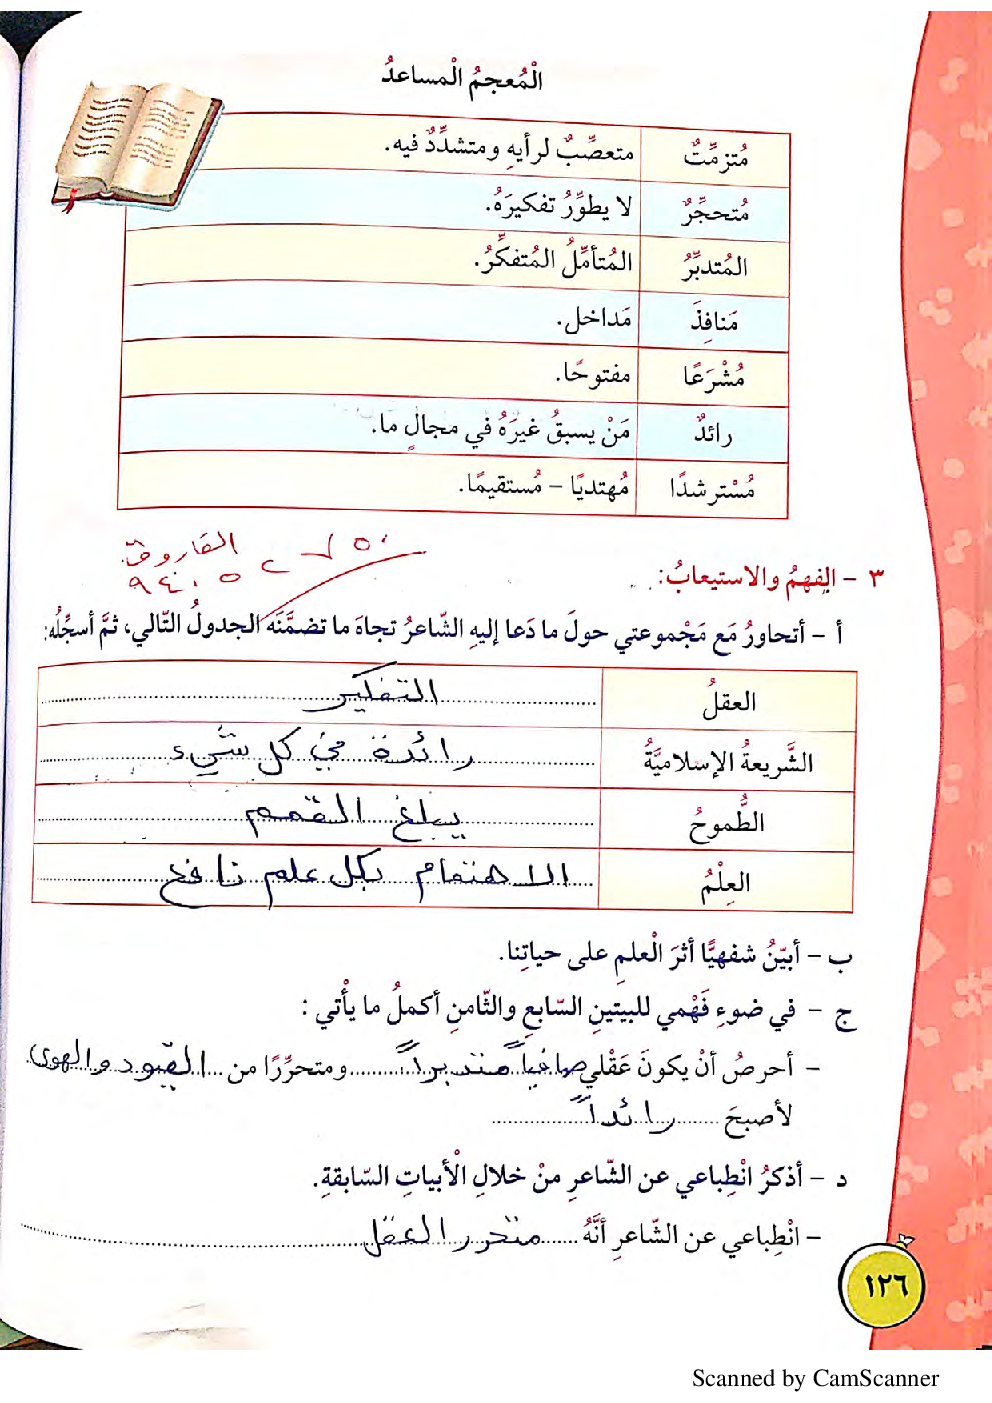 الْمُعجمُ الْمساعدُ
مُتزمِّتٌ متعصِّبٌ لرأيهِ ومتشدِّدٌ فيه.
مُتحجِّرٌ لا يطوِّرُ تفكيرَهُ.
المُتدبِّرُ المُتأمِّلُ المُتفكِّرُ.
مَنافِذَ مَداخل.
مُشْرَعًا مفتوحًا.
رائدٌ مَنْ يسبقُ غيرَهُ في مجالٍ ما.
مُسْترشدًا مُهتديًا – مُستقيمًا.
الفاروق
٩٤٠٥
٣ – الفهمُ والاستيعابُ:
أ – أتحاورُ مَع مَجْموعتي حولَ ما دَعا إليهِ الشّاعرُ تجاهَ ما تضمَّنَه الجدولُ التّالي، ثمَّ أسجِّلُه:
العقلُ التفكير
الشَّريعةُ الإسلاميَّةُ رائدة في كل شيء
الطُّموحُ يبلغ القمم
العِلْمُ الاهتمام بكل علم نافع
ب – أبيّنُ شفهيًّا أثرَ الْعلمِ على حياتِنا.
ج – في ضوءِ فَهْمي للبيتينِ السّابعِ والثّامنِ أكملُ ما يأْتي:
– أحرصُ أنْ يكونَ عَقْلي صافياً متدبراً ومتحرِّرًا من القيود والهوى
لأصبحَ رائداً
د – أذكرُ انْطِباعي عن الشّاعرِ منْ خلالِ الْأبياتِ السّابقةِ.
– انْطِباعي عن الشّاعرِ أنَّهُ متحرر العقل
١٢٦
Scanned by CamScanner